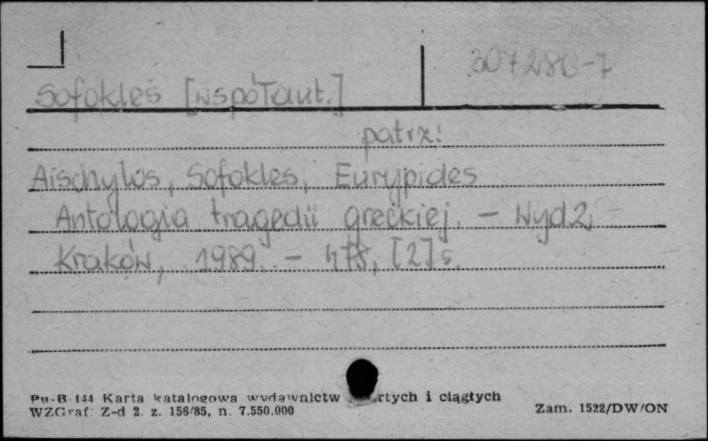 307280-7
Sofokles [współaut.]
patrz:
Aischylos, Sofokles, Eurypides
Antologia tragedii greckiej. - Wyd.2, -
Kraków, 1989. - 478, [2] s.
Pu-B-144 Karta katalogowa wydawnictw zwartych i ciągłych
WZGraf. Z-d 2. z. 156/85, n. 7.550.000
Zam. 1522/DW/ON